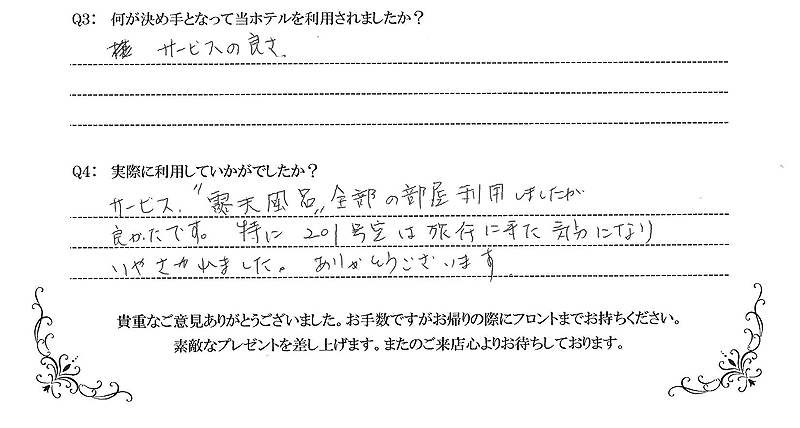 Q3： 何が決め手となって当ホテルを利用されましたか？
サービスの良さ。
Q4： 実際に利用していかがでしたか？
サービス、〝露天風呂〟全部の部屋利用しましたが
良かたです。特に 201号室は旅行に来た気分になり
いやされました。ありがとうございます
貴重なご意見ありがとうございました。お手数ですがお帰りの際にフロントまでお持ちください。
素敵なプレゼントを差し上げます。またのご来店心よりお待ちしております。